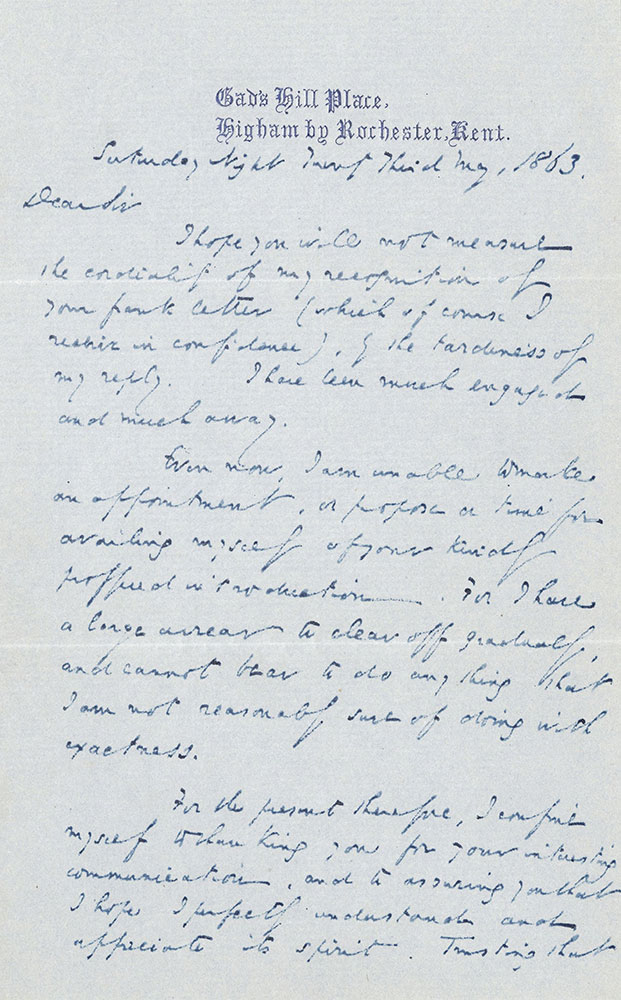 Gad's Hill Place,
Higham by Rochester, Kent.
Saturday Night Twenty Third May, 1863.
Dear Sir
I hope you will not measure
the cordiality of my recognition of
your frank letter (which of course I
receive in confidence), by the tardiness of
my reply. I have been much engaged
and much away.
Even now, I am unable to make
an appointment, or propose a time for
availing myself of your kindly
proffered introduction. For I have
a large arrear to clear off gradually,
and cannot bear to do any thing that
I am not reasonably sure of doing with
exactness.
For the present therefore, I confine
myself to thanking you for your interesting
communication, and to assuring you that
I hope I perfectly understand and
appreciate its spirit. Trusting that